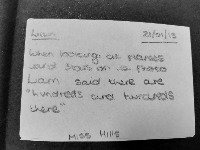 Liam 21/01/13
When looking at planes
and stars on a photo
Liam said there are
"hundreds and hundreds
there"
Miss Mills